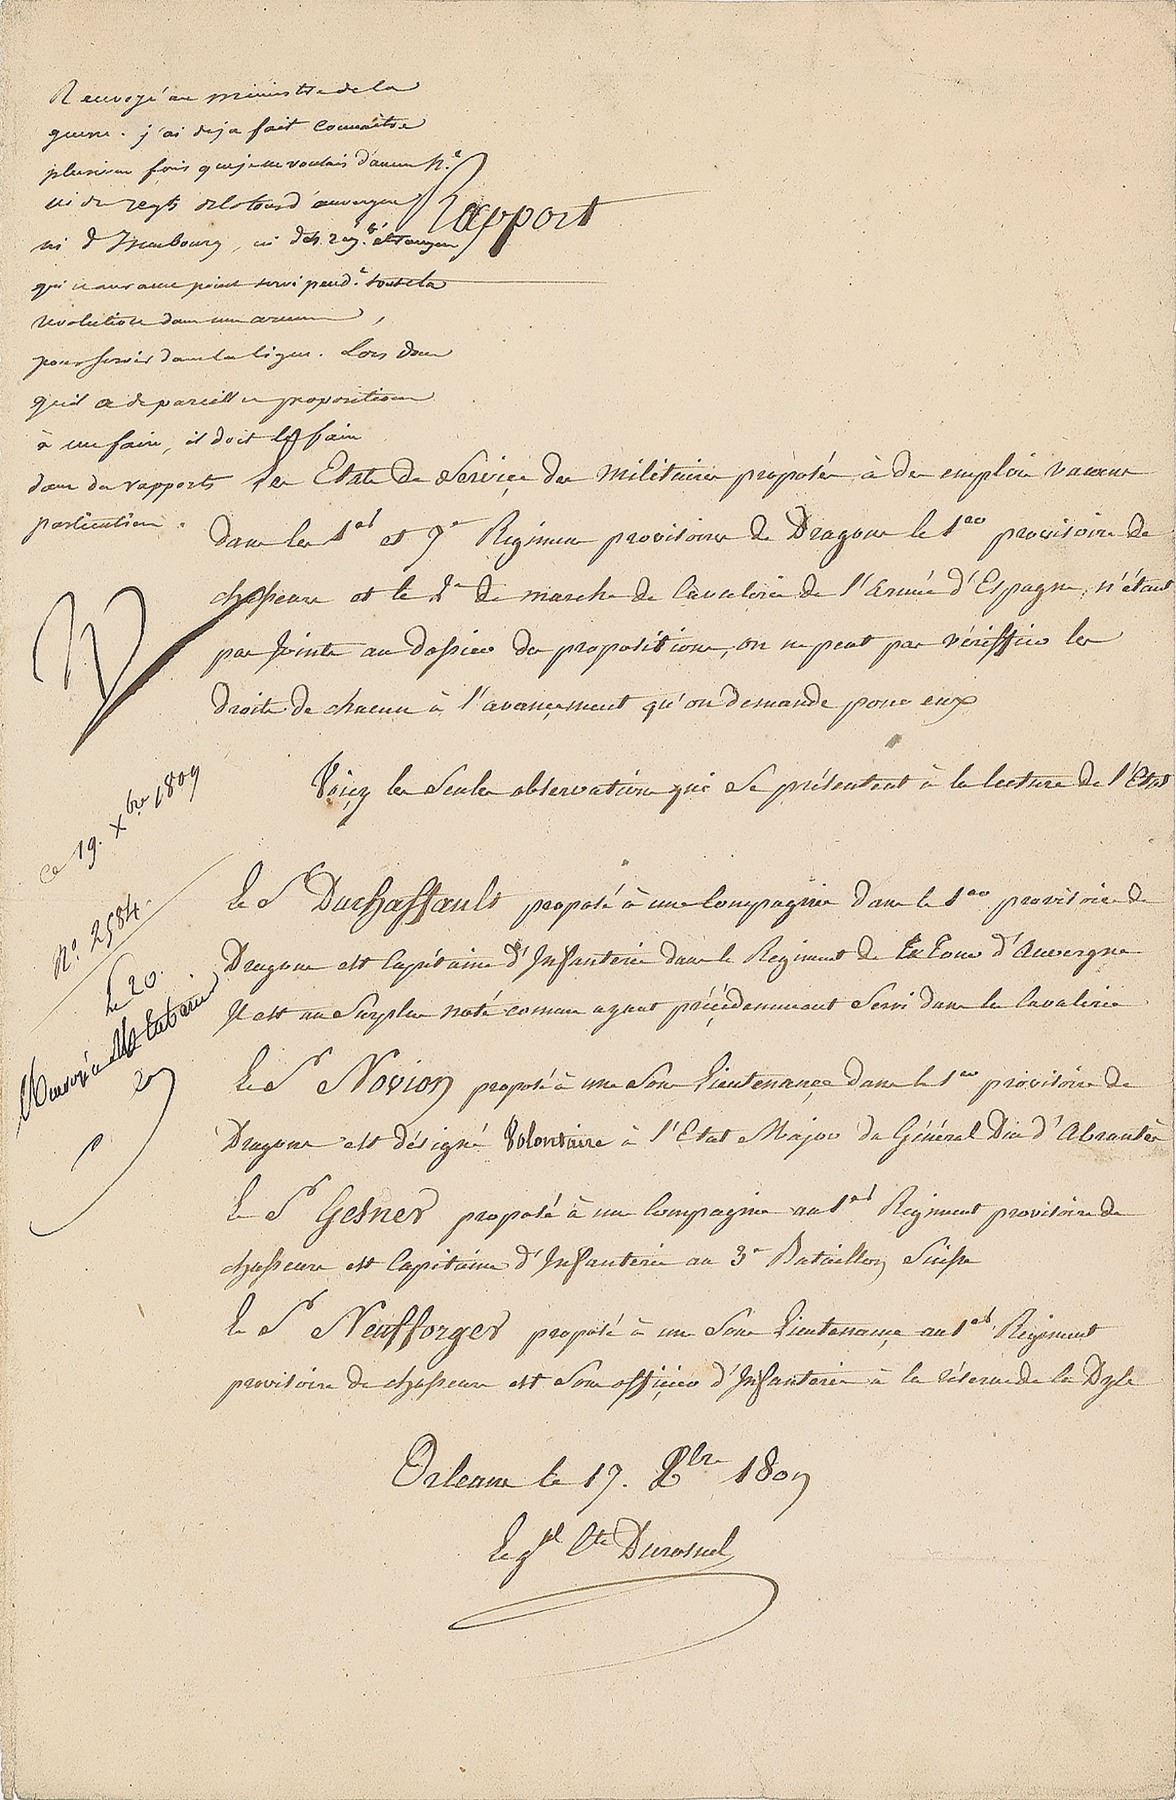 Renvoyé au ministre de la
guerre. j'ai deja fait connaitre
plusieurs fois que je ne voulais d'aucun
ni du regt de latour d'auvergne
ni d'Isembourg, ni des regts etrangers
qui n'auraient point servi pendt toute la
revolution dans une armée,
pour servir dans la ligne. Lors donc
qu'il a de pareilles propositions
à me faire, il doit les faire
dans des rapports
particuliers.
N
ce 19. Xbre 1809
No. 2584.
Le 20.
Renvoyé
Rapport
Les Etats de Service des Militaires proposés à des emplois vacans
dans les 1er et 9e Régimens provisoires de Dragons le 1er provisoire de
chasseurs et le 2e de marche de Cavalerie de l'Armée d'Espagne, n'étant
pas joints au dossier des propositions, on ne peut pas vériffier les
droits de chacun à l'avancement qu'on demande pour eux
Voiçy les Seules observations qui Se présentent à la lecture de l'Etat
Le Sr Duchaffault proposé à une Compagnie dans le 1er provisoire de
Dragons est Capitaine d'Infanterie dans le Régiment de La Tour d'Auvergne
Il est au Surplus noté comme ayant précédemment Servi dans la Cavalerie
Le Sr Novion proposé à une Sous Lieutenance dans le 1er provisoire de
Dragons est désigné Volontaire à l'Etat Major du Général Duc d'Abrantès
Le Sr Gesner proposé à une Compagnie au 1er Régiment provisoire de
chasseurs est Capitaine d'Infanterie au 3e Bataillon Suisse
Le Sr Neufforger proposé à une Sous Lieutenance au 1er Régiment
provisoire de chasseurs est Sous officier d'Infanterie à la réserve de la Dyle
Orleans le 17. Xbre 1809
Le gal Cte Durosnel